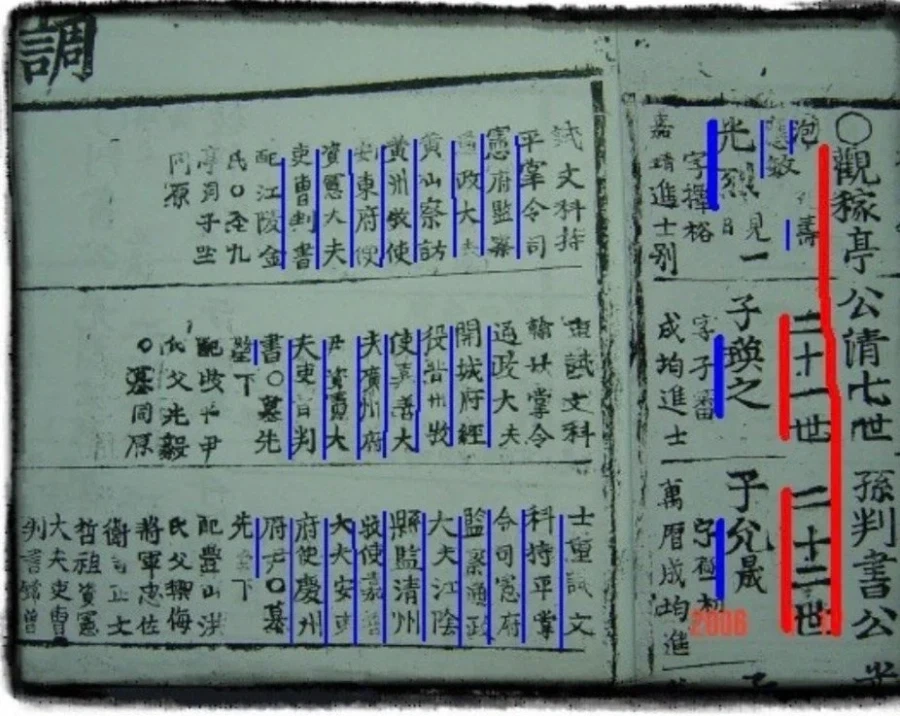 調
○觀稼亭公清七世孫判書公
泡
壽
敏
光烈
見一
字擇裕
嘉靖進士別
試文科持
平掌令司
憲府監察
通政大夫
黃山察訪
黃州牧使
安東府使
資憲大夫
吏曹判書
配江陵金
氏○
亭洞子坐
同原
二十一世
子瑛之
字子蕃
成均進士
重試文科
翰林掌令
通政大夫
開城府經
役晋州牧
使嘉善大
夫廣州府
尹資憲大
夫吏曹判
書○墓先
塋下
配坡平尹
氏父允毅
○墓同原
二十二世
子允晟
字
萬曆成均進
士重試文
科持平掌
令司憲府
監察通政
大夫江陰
縣監清州
牧使嘉善
大夫安東
府使慶州
府尹○墓
先塋下
配豊山洪
氏父
將軍忠佐
衛司正大
哲祖資憲
大夫吏曹
判書曾
2006